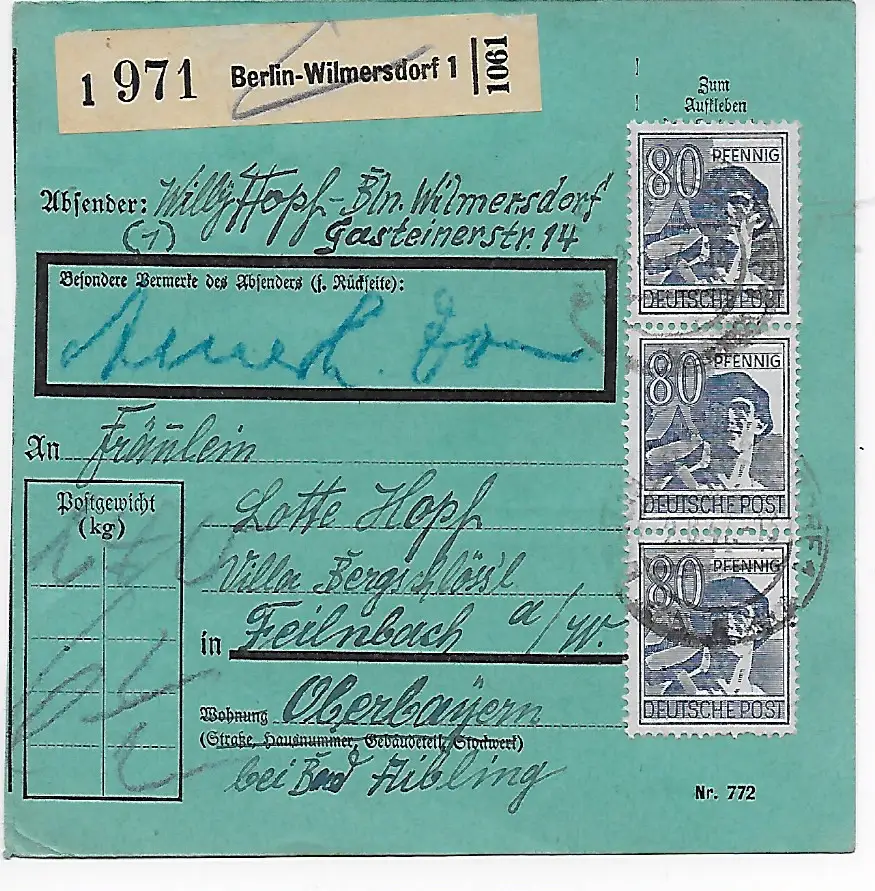 1 971 Berlin-Wilmersdorf 1 1061
Zum
Aufkleben
80 PFENNIG
DEUTSCHE POST
80 PFENNIG
DEUTSCHE POST
80 PFENNIG
DEUTSCHE POST
Absender: Willy Hopf - Bln. Wilmersdorf
(1) Gasteinerstr. 14
Besondere Vermerke des Absenders (s. Rückseite):
An Fräulein
Lotte Hopf
Villa Bergschlössl
in Feilnbach a/W.
Wohnung Oberbayern
(Straße, Hausnummer, Gebäudeteil, Stockwerk)
bei Bad Aibling
Postgewicht
(kg)
Nr. 772